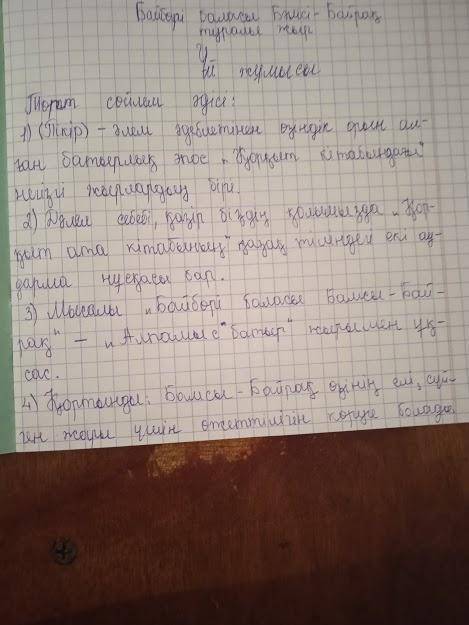 Байбөрі баласы Бәмсі-Байрақ
туралы жыр
Үй жұмысы
Төрт сөйлем әдісі:
1) (Пікір) – әлем әдебиетінен өзіндік орын ал-
ған батырлық эпос „Қорқыт кітабындағы"
негізгі жырлардың бірі.
2) Дәлел себебі, қазір біздің қолымызда „Қор-
қыт ата кітабының" қазақ тіліндегі екі ау-
дарма нұсқасы бар.
3) Мысалы „Байбөрі баласы Бамсы-Бай-
рақ" – „Алпамыс батыр" жырымен ұқ-
сас.
4) Қортынды: Бамсы-Байрақ өзінің елі, сүй-
ген жары үшін ожеттілігін көруге болады.